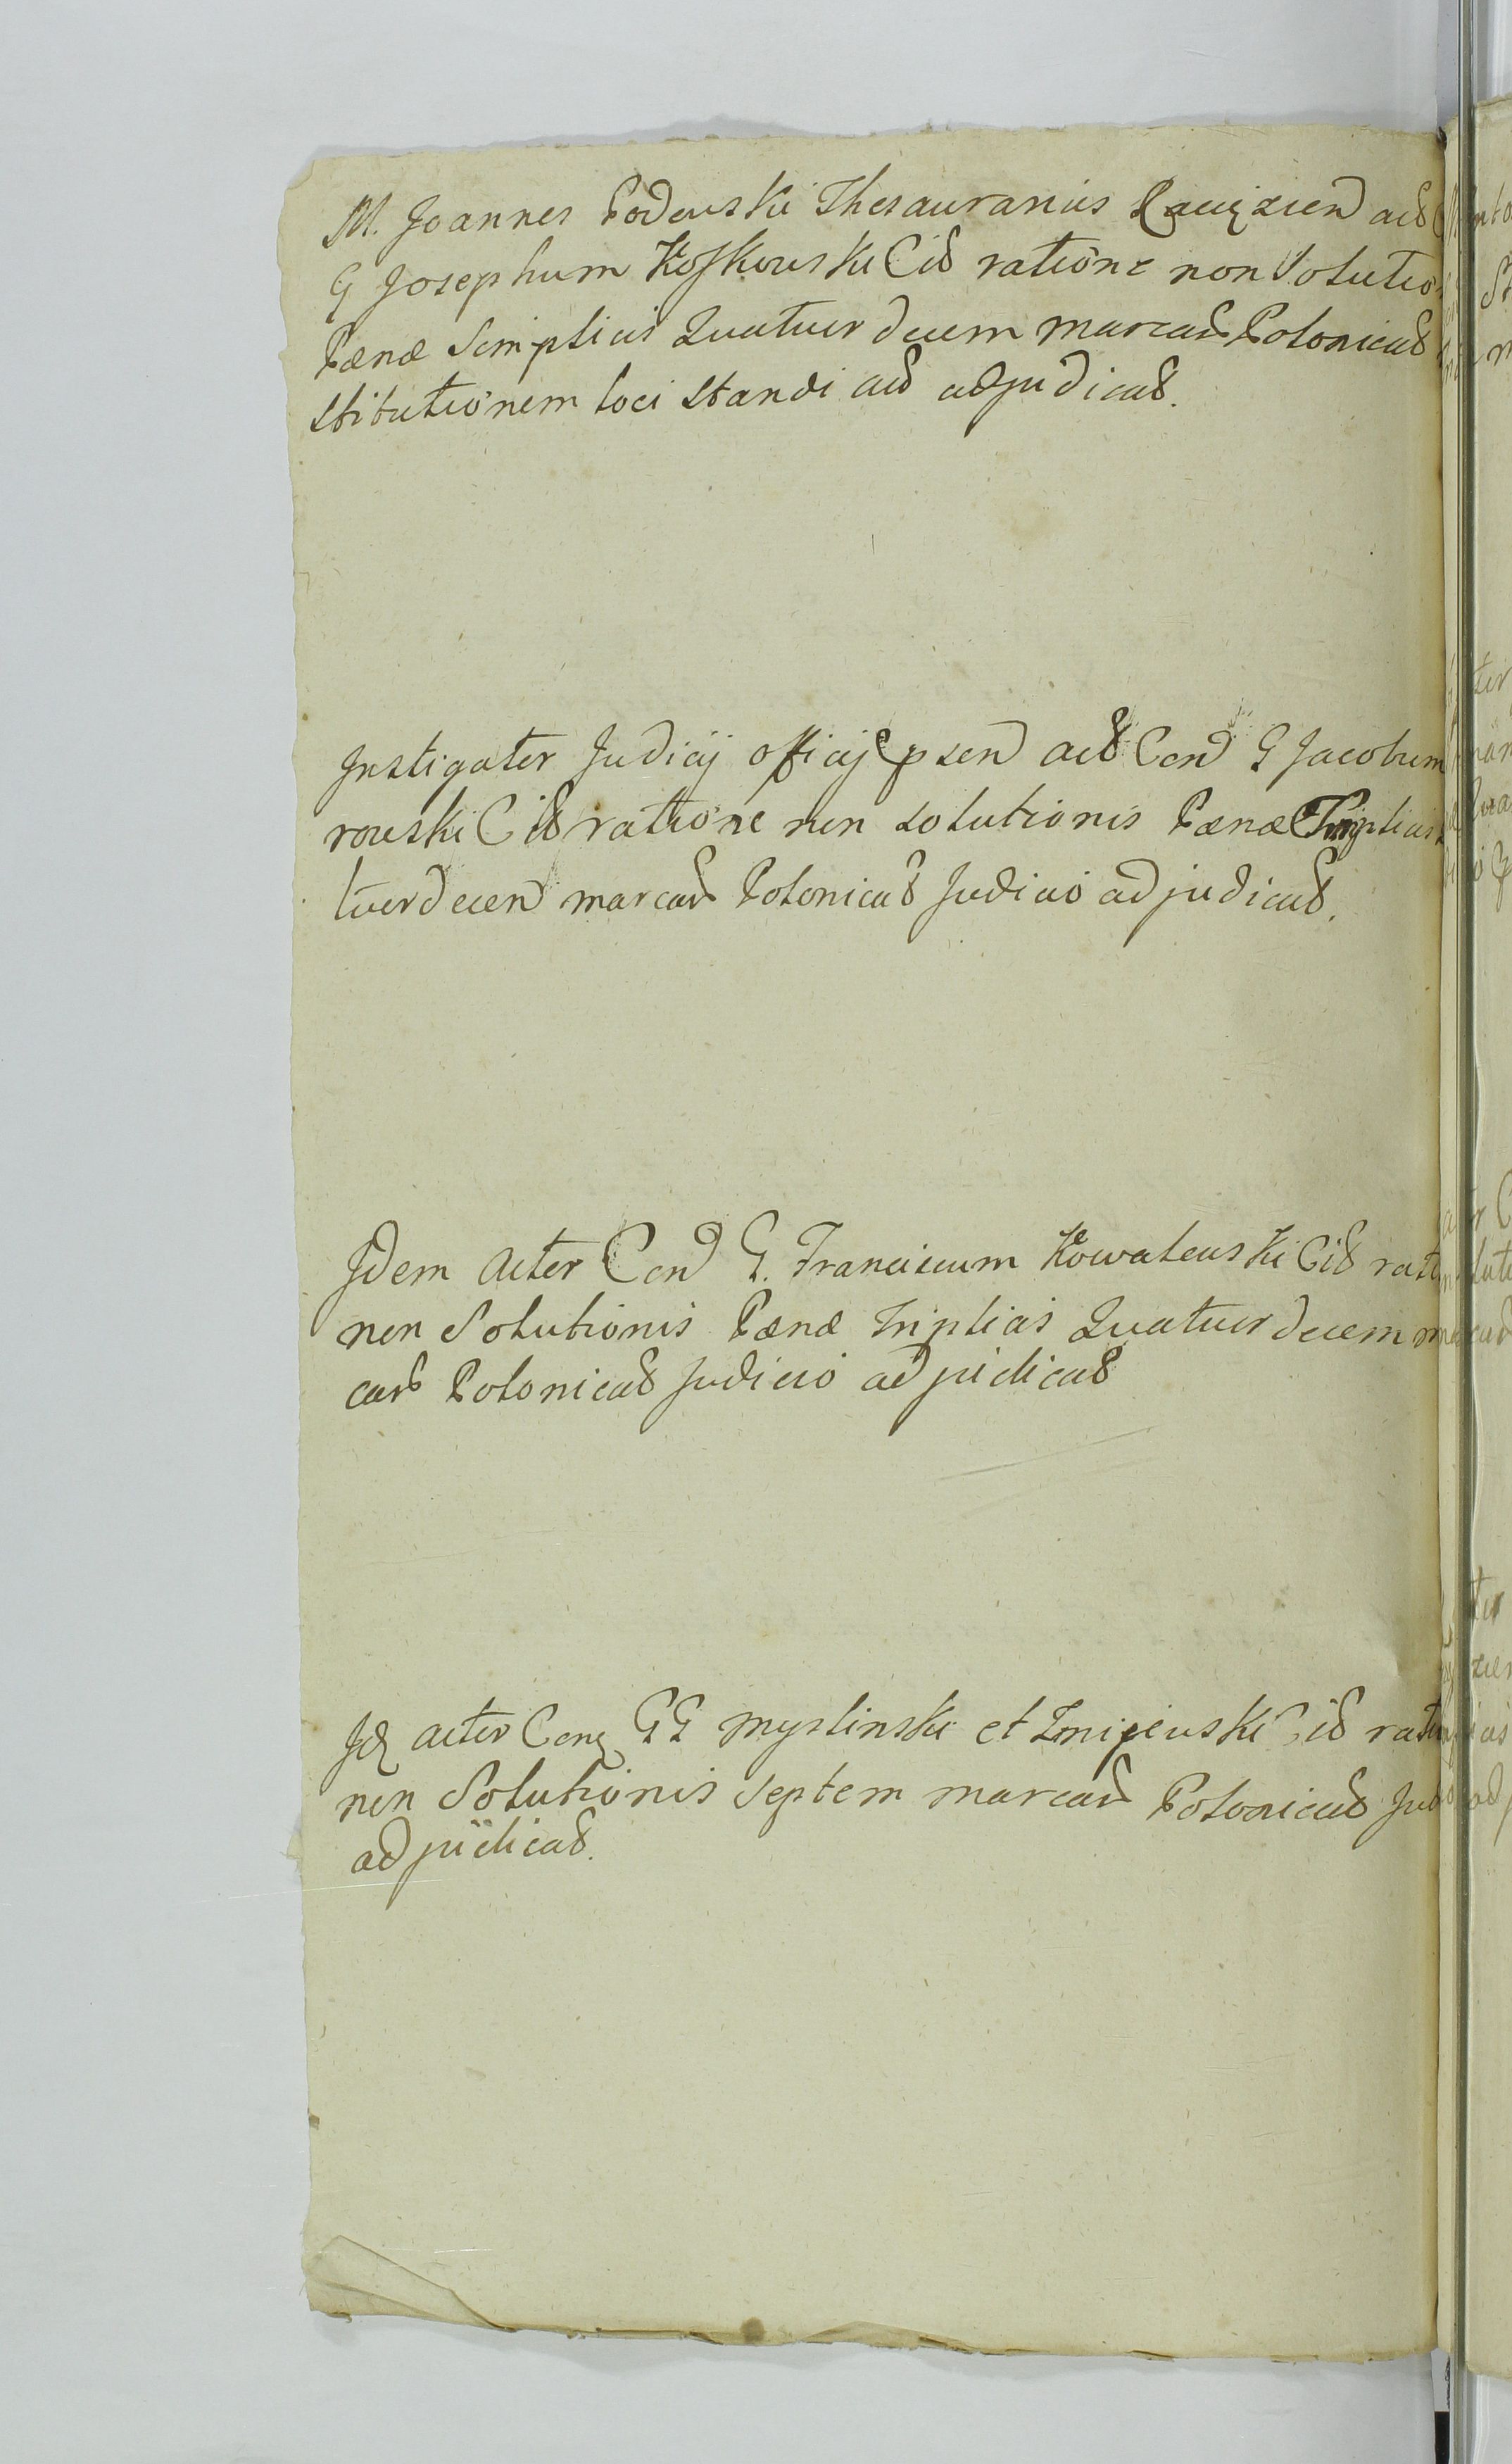 M. Joannes Podeuski Thesaurarius
G Josephum Koskouski Cib ratione non Solutio
Pænæ Simplicis Quatuor decem marcar Polonical
stitutionem loci standi aub adjudicab.
Instigator Judicij officij aub Con G Jacobum
rouski Cib ratione non solutionis Pænæ Triplicis
tuordecem marcar Polonicab Judicio adjudicab.
Idem Actor Con G. Franciscum Kowaleuski Cib rati
non Solutionis Pænæ Triplicis Quatuor decem m
car Polonicab Judicio adjudicab
Id actor Con GG myslinski et Cib rati
non Solutionis septem marcar Polonicab Jud
adjudicab.